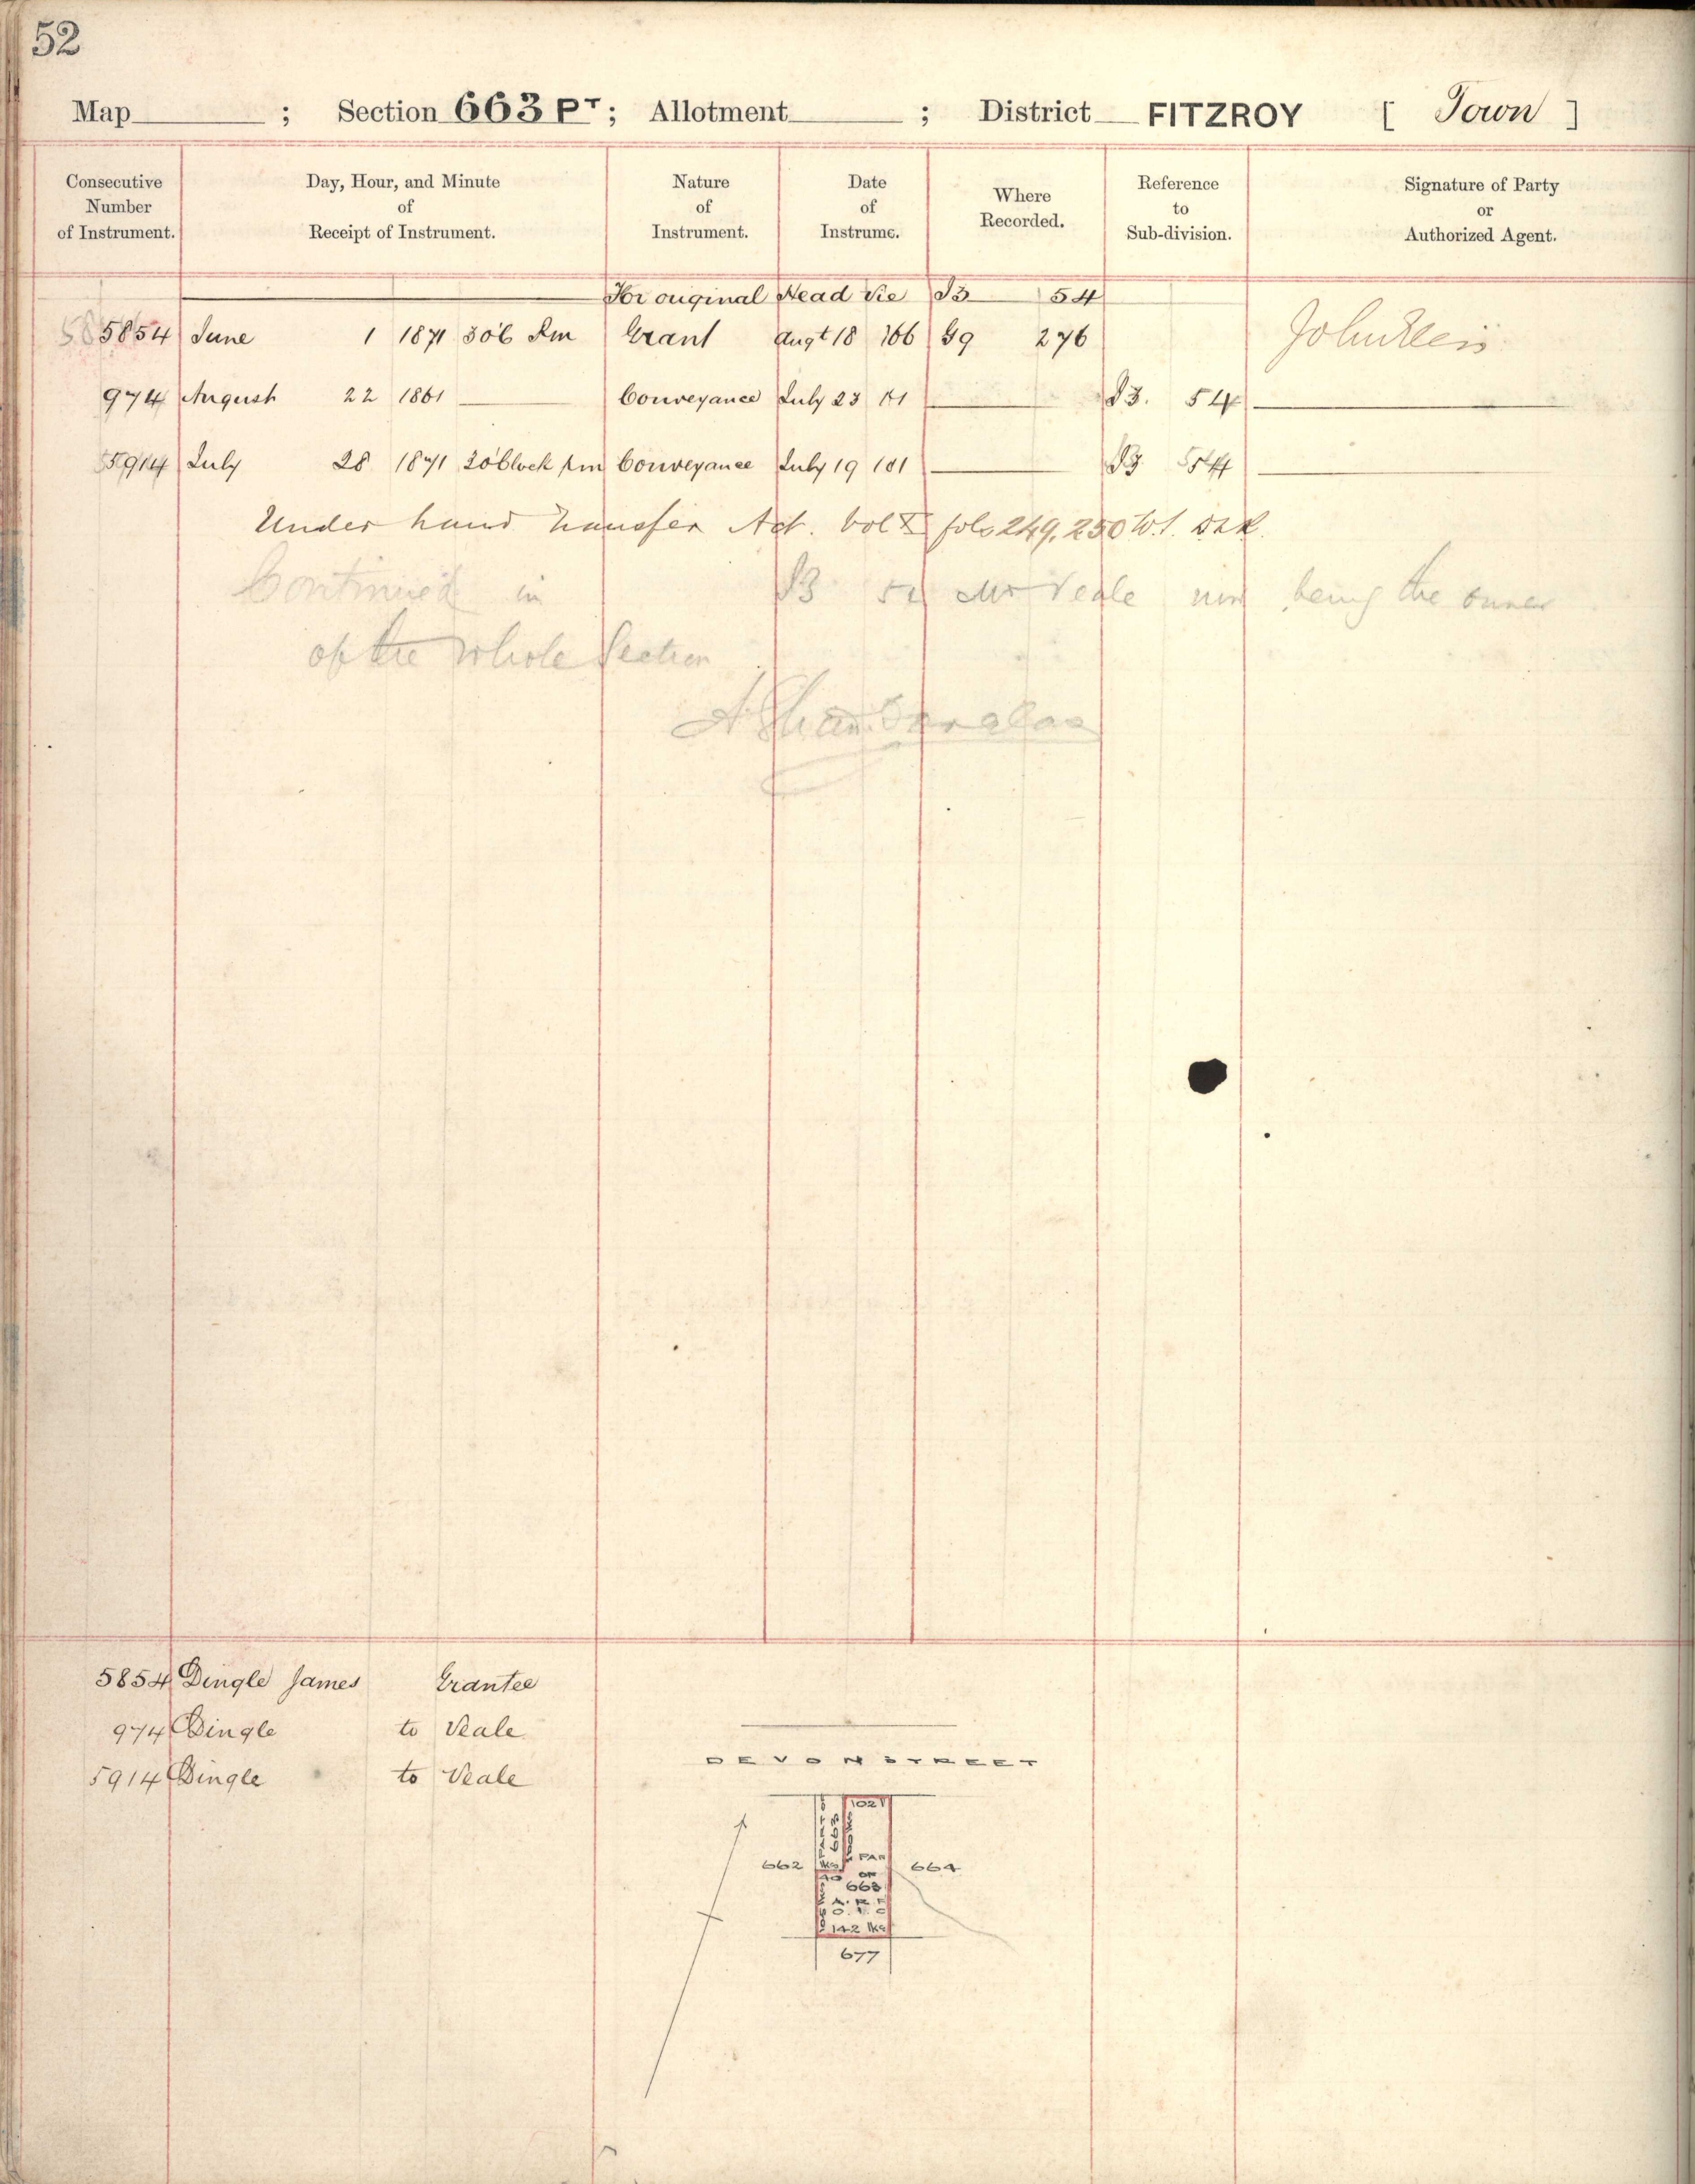 52
Map ; Section 663 PT; Allotment ; District FITZROY [ Town ]
Consecutive Number of Instrument.
Day, Hour, and Minute of Receipt of Instrument.
Nature of Instrument.
Date of Instrume.
Where Recorded.
Reference to Sub-division.
Signature of Party or Authorized Agent.
For original Head vie 54
5854 June 1 1871 Grant Augt 18 G9 276
974 August 22 1861 Conveyance July 23 54
5914 July 28 1871 Conveyance July 19
Under hand Transfer Act. Vol fols 249, 250
Continued in Mr Veale now being the owner
of the whole Section
5854 Dingle James Grantee
974 Dingle to Veale
5914 Dingle to Veale
DEVON STREET
1021
662 PART 664
OF
663
142 lks
677